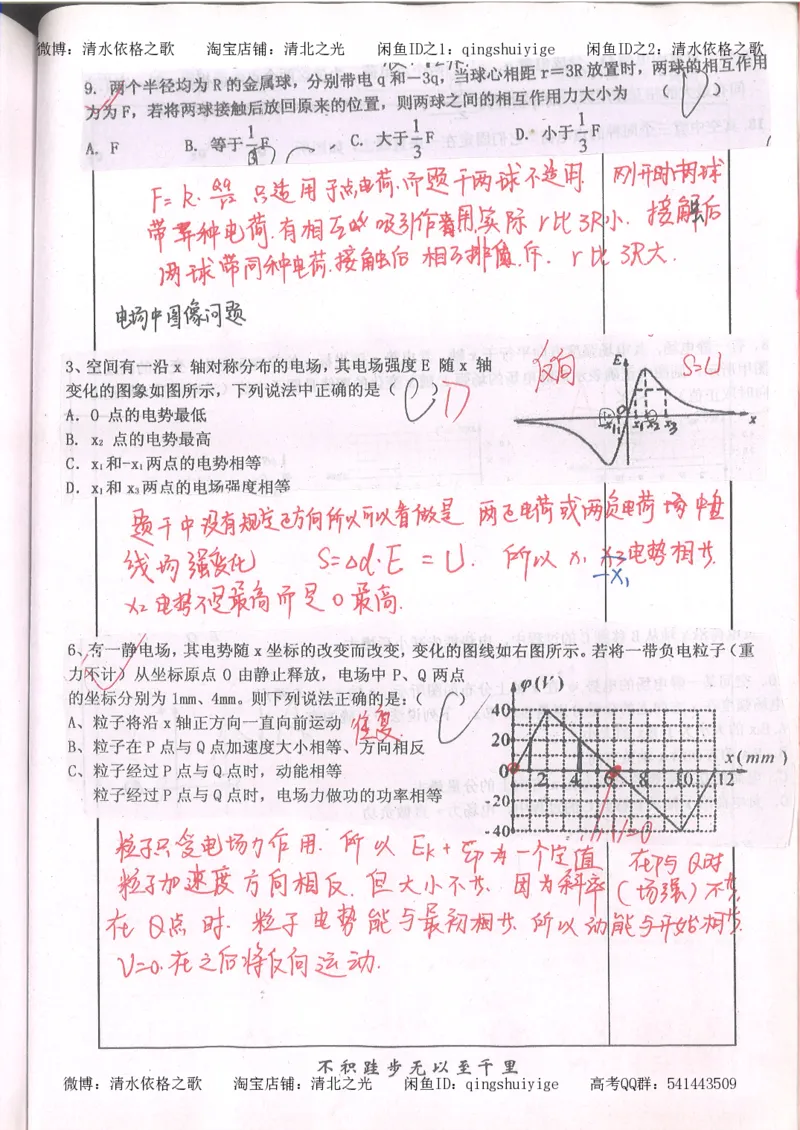 微博：清水依格之歌 淘宝店铺：清北之光 闲鱼ID之1：qingshuiyige 闲鱼ID之2：清水依格之歌
9. 两个半径均为 R 的金属球，分别带电 q 和－3q，当球心相距 r＝3R 放置时，两球的相互作用
力为 F，若将两球接触后放回原来的位置，则两球之间的相互作用力大小为 （ D ）
A. F B. 等于1/3F C. 大于1/3F D. 小于1/3F
F=k·qq/r² 只适用于点电荷.而题干两球不适用 刚开时两球
带异种电荷.有相互 吸引作用.实际 r比3R小. 接触后
两球带同种电荷.接触后 相互排斥. r比 3R大.
电场中图像问题
3、空间有一沿 x 轴对称分布的电场，其电场强度 E 随 x 轴
变化的图象如图所示，下列说法中正确的是（ C ）
A．O 点的电势最低
B．x₂ 点的电势最高
C．x₁和-x₁两点的电势相等
D．x₁和 x₃两点的电场强度相等
反向 S=U
E
O
-x₁ x₁ x₂ x₃ x
题干中没有规定正方向所以可以看做是 两正电荷或两负电荷场中垂
线均强变化 S=Δd·E=U. 所以 x₁ x₃电势相等.
-x₁
x₂电势不是最高而是0最高.
6、有一静电场，其电势随 x 坐标的改变而改变，变化的图线如右图所示。若将一带负电粒子（重
力不计）从坐标原点 O 由静止释放，电场中 P、Q 两点
的坐标分别为 1mm、4mm。则下列说法正确的是： C
A、粒子将沿 x 轴正方向一直向前运动 往复
B、粒子在 P 点与 Q 点加速度大小相等、方向相反
C、粒子经过 P 点与 Q 点时，动能相等
粒子经过 P 点与 Q 点时，电场力做功的功率相等
φ(V)
40
20
0 2 4 6 8 10 12 x(mm)
-20
-40
V=0
粒子只受电场力作用. 所以 Ek+Ep为一个定值 在P与Q时
粒子加速度方向相反.但大小不等. 因为斜率(场强)不等.
在 Q点时. 粒子电势能与最初相等.所以动能与开始相等.
V=0.在之后将反向运动.
不积跬步无以至千里
微博：清水依格之歌 淘宝店铺：清北之光 闲鱼ID：qingshuiyige 高考QQ群：541443509